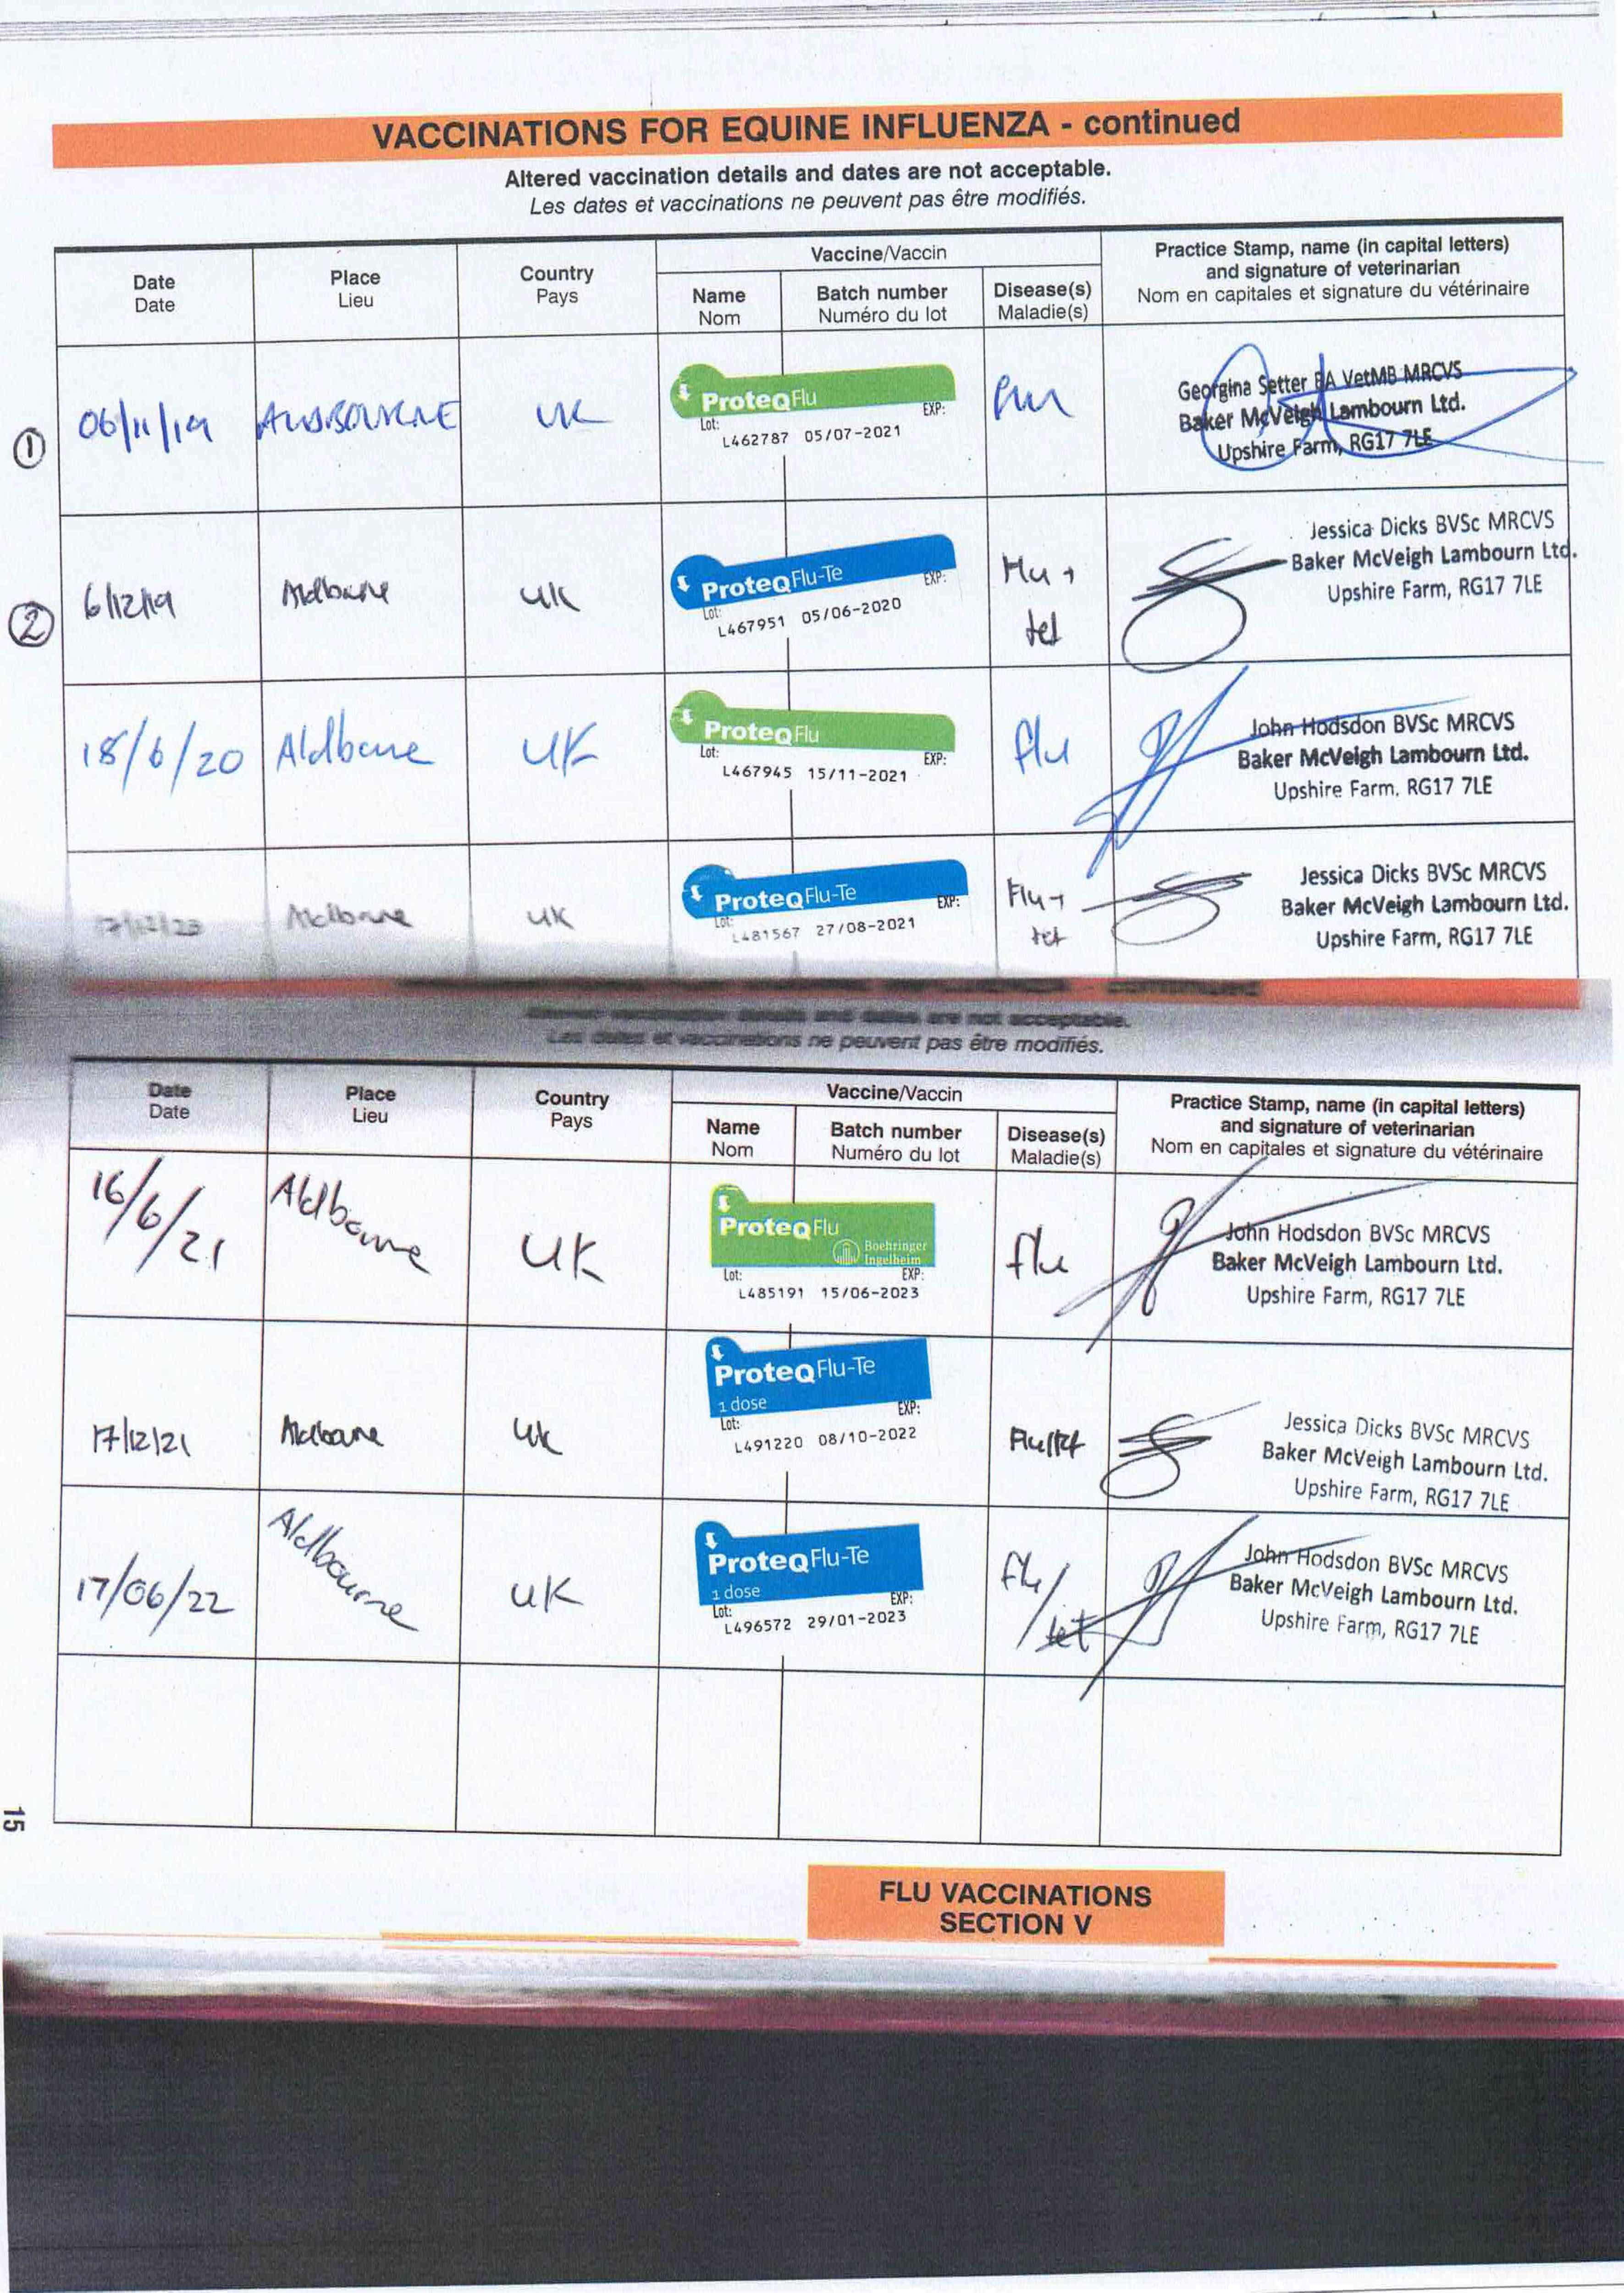 VACCINATIONS FOR EQUINE INFLUENZA - continued
Altered vaccination details and dates are not acceptable.
Les dates et vaccinations ne peuvent pas être modifiés.
Date
Date
Place
Lieu
Country
Pays
Vaccine/Vaccin
Name
Nom
Batch number
Numéro du lot
Disease(s)
Maladie(s)
Practice Stamp, name (in capital letters)
and signature of veterinarian
Nom en capitales et signature du vétérinaire
①
06/11/19
UK
ProteqFlu
Lot: EXP:
L462787 05/07-2021
Georgina Setter BA VetMB MRCVS
Baker McVeigh Lambourn Ltd.
Upshire Farm, RG17 7LE
②
6/12/19
Aldbourne
UK
ProteqFlu-Te
Lot: EXP:
L467951 05/06-2020
Flu +
tet
Jessica Dicks BVSc MRCVS
Baker McVeigh Lambourn Ltd.
Upshire Farm, RG17 7LE
18/6/20
Aldbourne
UK
ProteqFlu
Lot: EXP:
L467945 15/11-2021
flu
John Hodsdon BVSc MRCVS
Baker McVeigh Lambourn Ltd.
Upshire Farm. RG17 7LE
Aldbourne
UK
ProteqFlu-Te
Lot: EXP:
L481567 27/08-2021
Flu +
tet
Jessica Dicks BVSc MRCVS
Baker McVeigh Lambourn Ltd.
Upshire Farm, RG17 7LE
INFLUENZA - continued
Altered vaccination details and dates are not acceptable.
Les dates et vaccinations ne peuvent pas être modifiés.
Date
Date
Place
Lieu
Country
Pays
Vaccine/Vaccin
Name
Nom
Batch number
Numéro du lot
Disease(s)
Maladie(s)
Practice Stamp, name (in capital letters)
and signature of veterinarian
Nom en capitales et signature du vétérinaire
16/6/21
Aldbourne
UK
ProteqFlu
Boehringer
Ingelheim
Lot: EXP:
L485191 15/06-2023
flu
John Hodsdon BVSc MRCVS
Baker McVeigh Lambourn Ltd.
Upshire Farm, RG17 7LE
17/12/21
Aldbourne
UK
ProteqFlu-Te
1 dose
Lot: EXP:
L491220 08/10-2022
Flu/tet
Jessica Dicks BVSc MRCVS
Baker McVeigh Lambourn Ltd.
Upshire Farm, RG17 7LE
17/06/22
Aldbourne
UK
ProteqFlu-Te
1 dose
Lot: EXP:
L496572 29/01-2023
flu/
tet
John Hodsdon BVSc MRCVS
Baker McVeigh Lambourn Ltd.
Upshire Farm, RG17 7LE
15
FLU VACCINATIONS
SECTION V